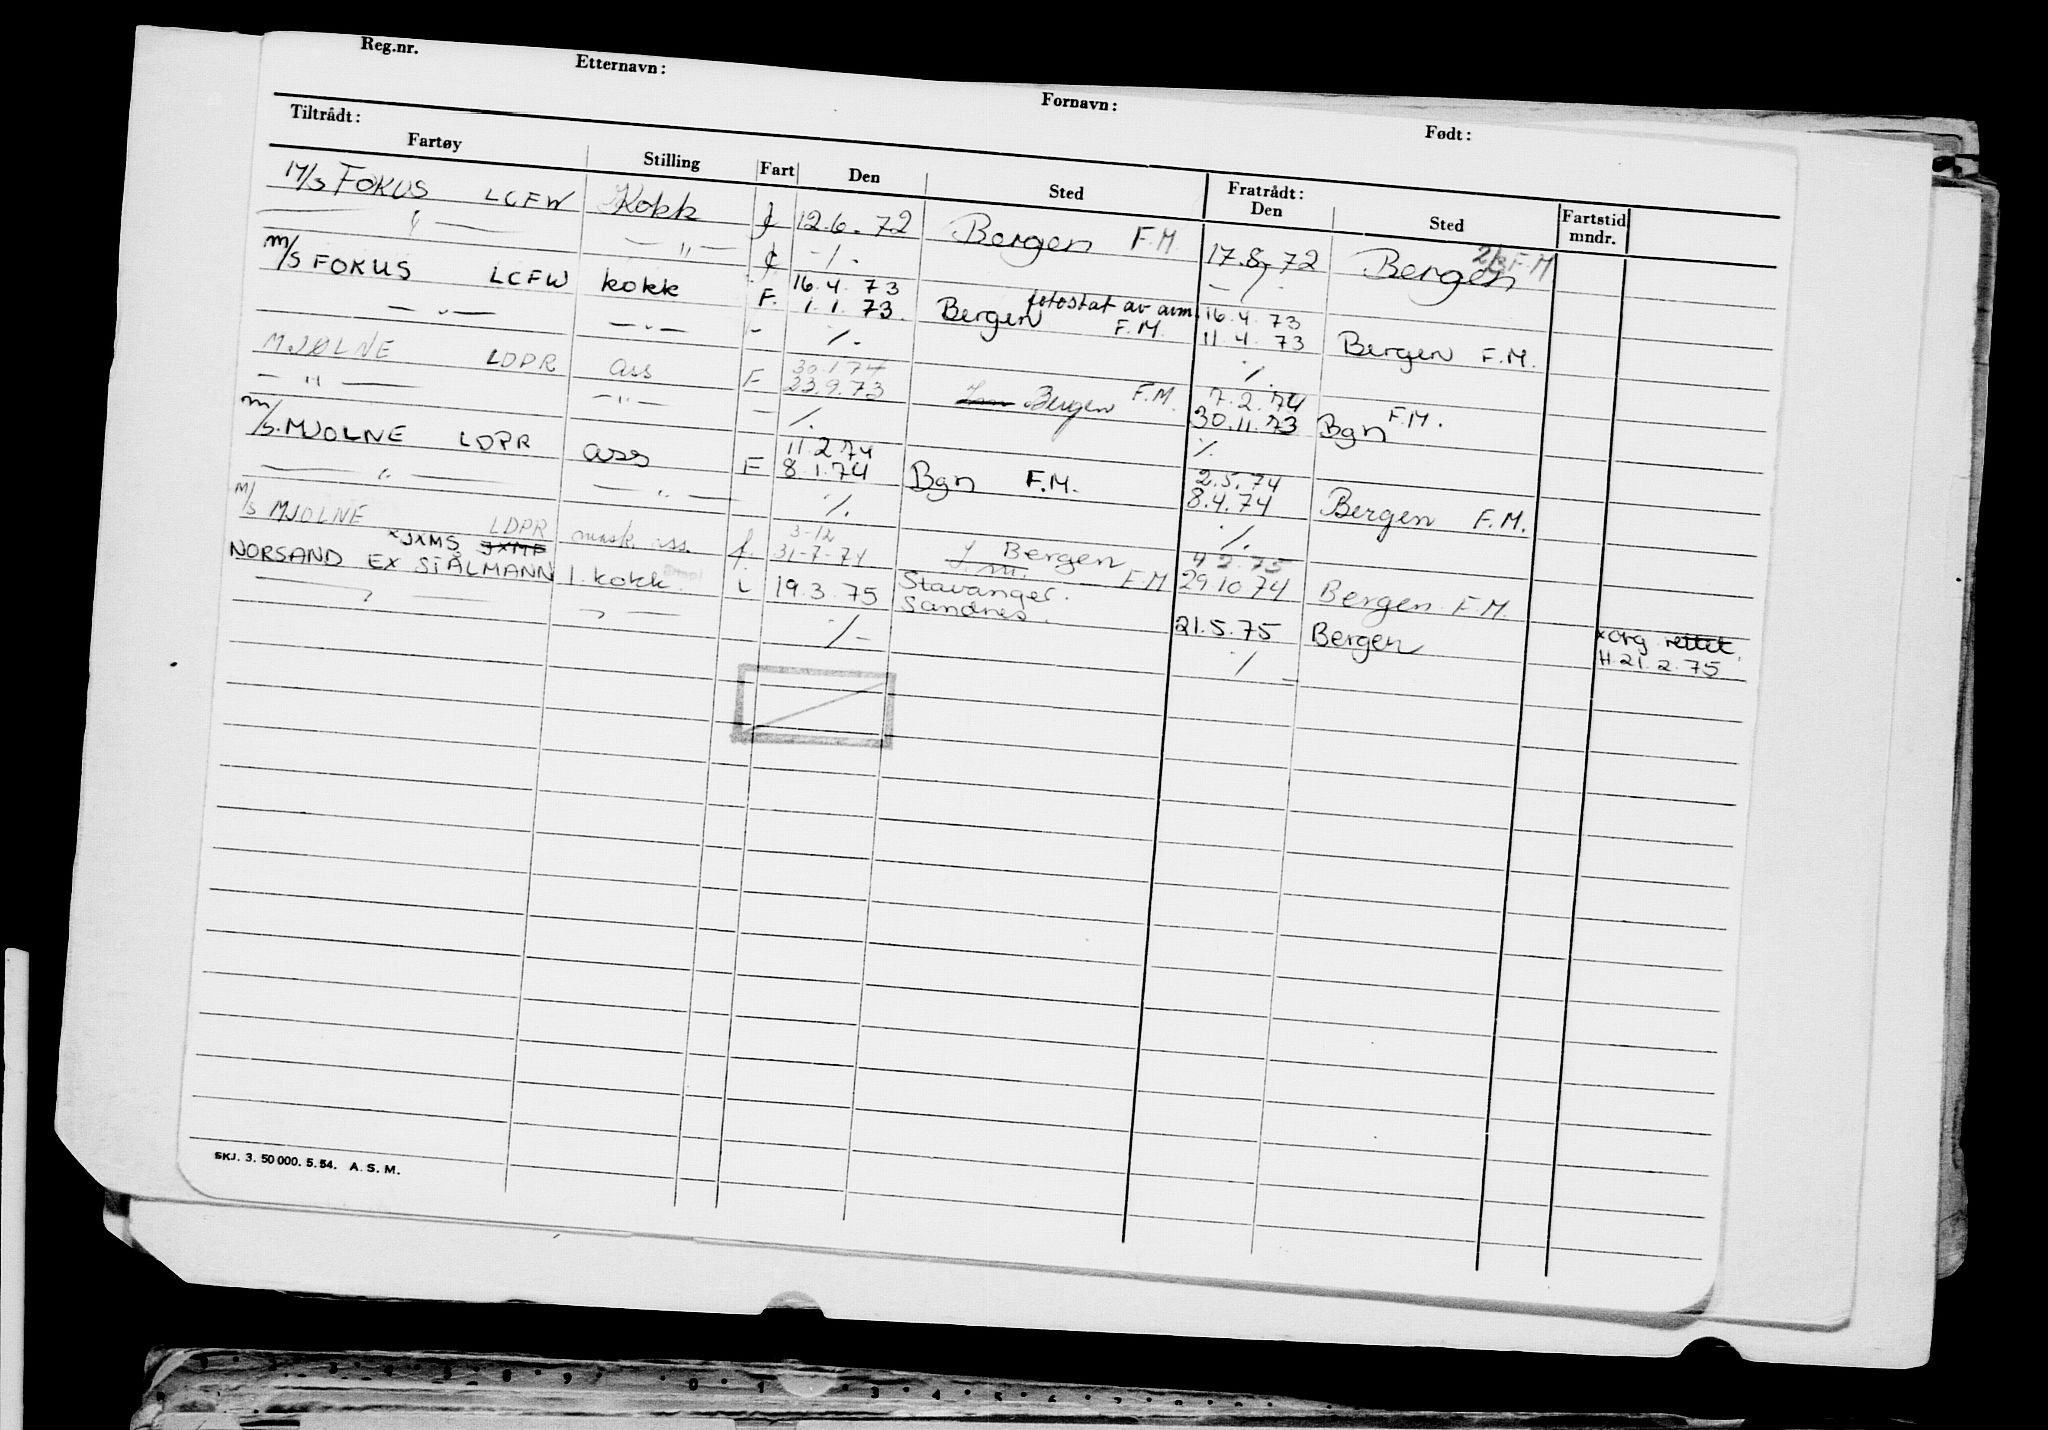 Reg.nr. Etternavn: Fornavn: Født:
Tiltrådt: Fratrådt:
Fartøy Stilling Fart Den Sted Den Sted Fartstid mndr.
M/S FOKUS LCFW Kokk f 12.6.72 Bergen F.M. 17.8.72 Bergen F.M
— " — — " — -/-
m/s FOKUS LCFW kokk F. 16.4.73 fotostat av avm. 16.4.73
1.1.73. Bergen F.M. 11.4.73 Bergen F.M.
— " — — " — - -/- -/-
MJØLNE LDPR ass F 30.1.74 7.2.74
23.9.73 Bergen F.M. 30.11.73 Bgn F.M.
— " — — " — — -/- -/-
m/s. MJOLNE LDPR ass F 11.2.74 2.5.74
8.1.74 Bgn F.M. 8.4.74 Bergen F.M.
— " — — " — -/- -/-
m/s MJOLNE LDPR mask. ass. f. 3-12 4.2.75
31-7-74 Bergen F.M 29.10.74 Bergen F.M.
xJXMS JXMF
NORSAND EX SIALMANN 1. kokk. 19.3.75 Stavanger. Sandnes. 21.5.75 Bergen xorg rettet. H.21.2.75
— " — " -/- -/-
SKJ. 3. 50 000. 5. 54. A. S. M.